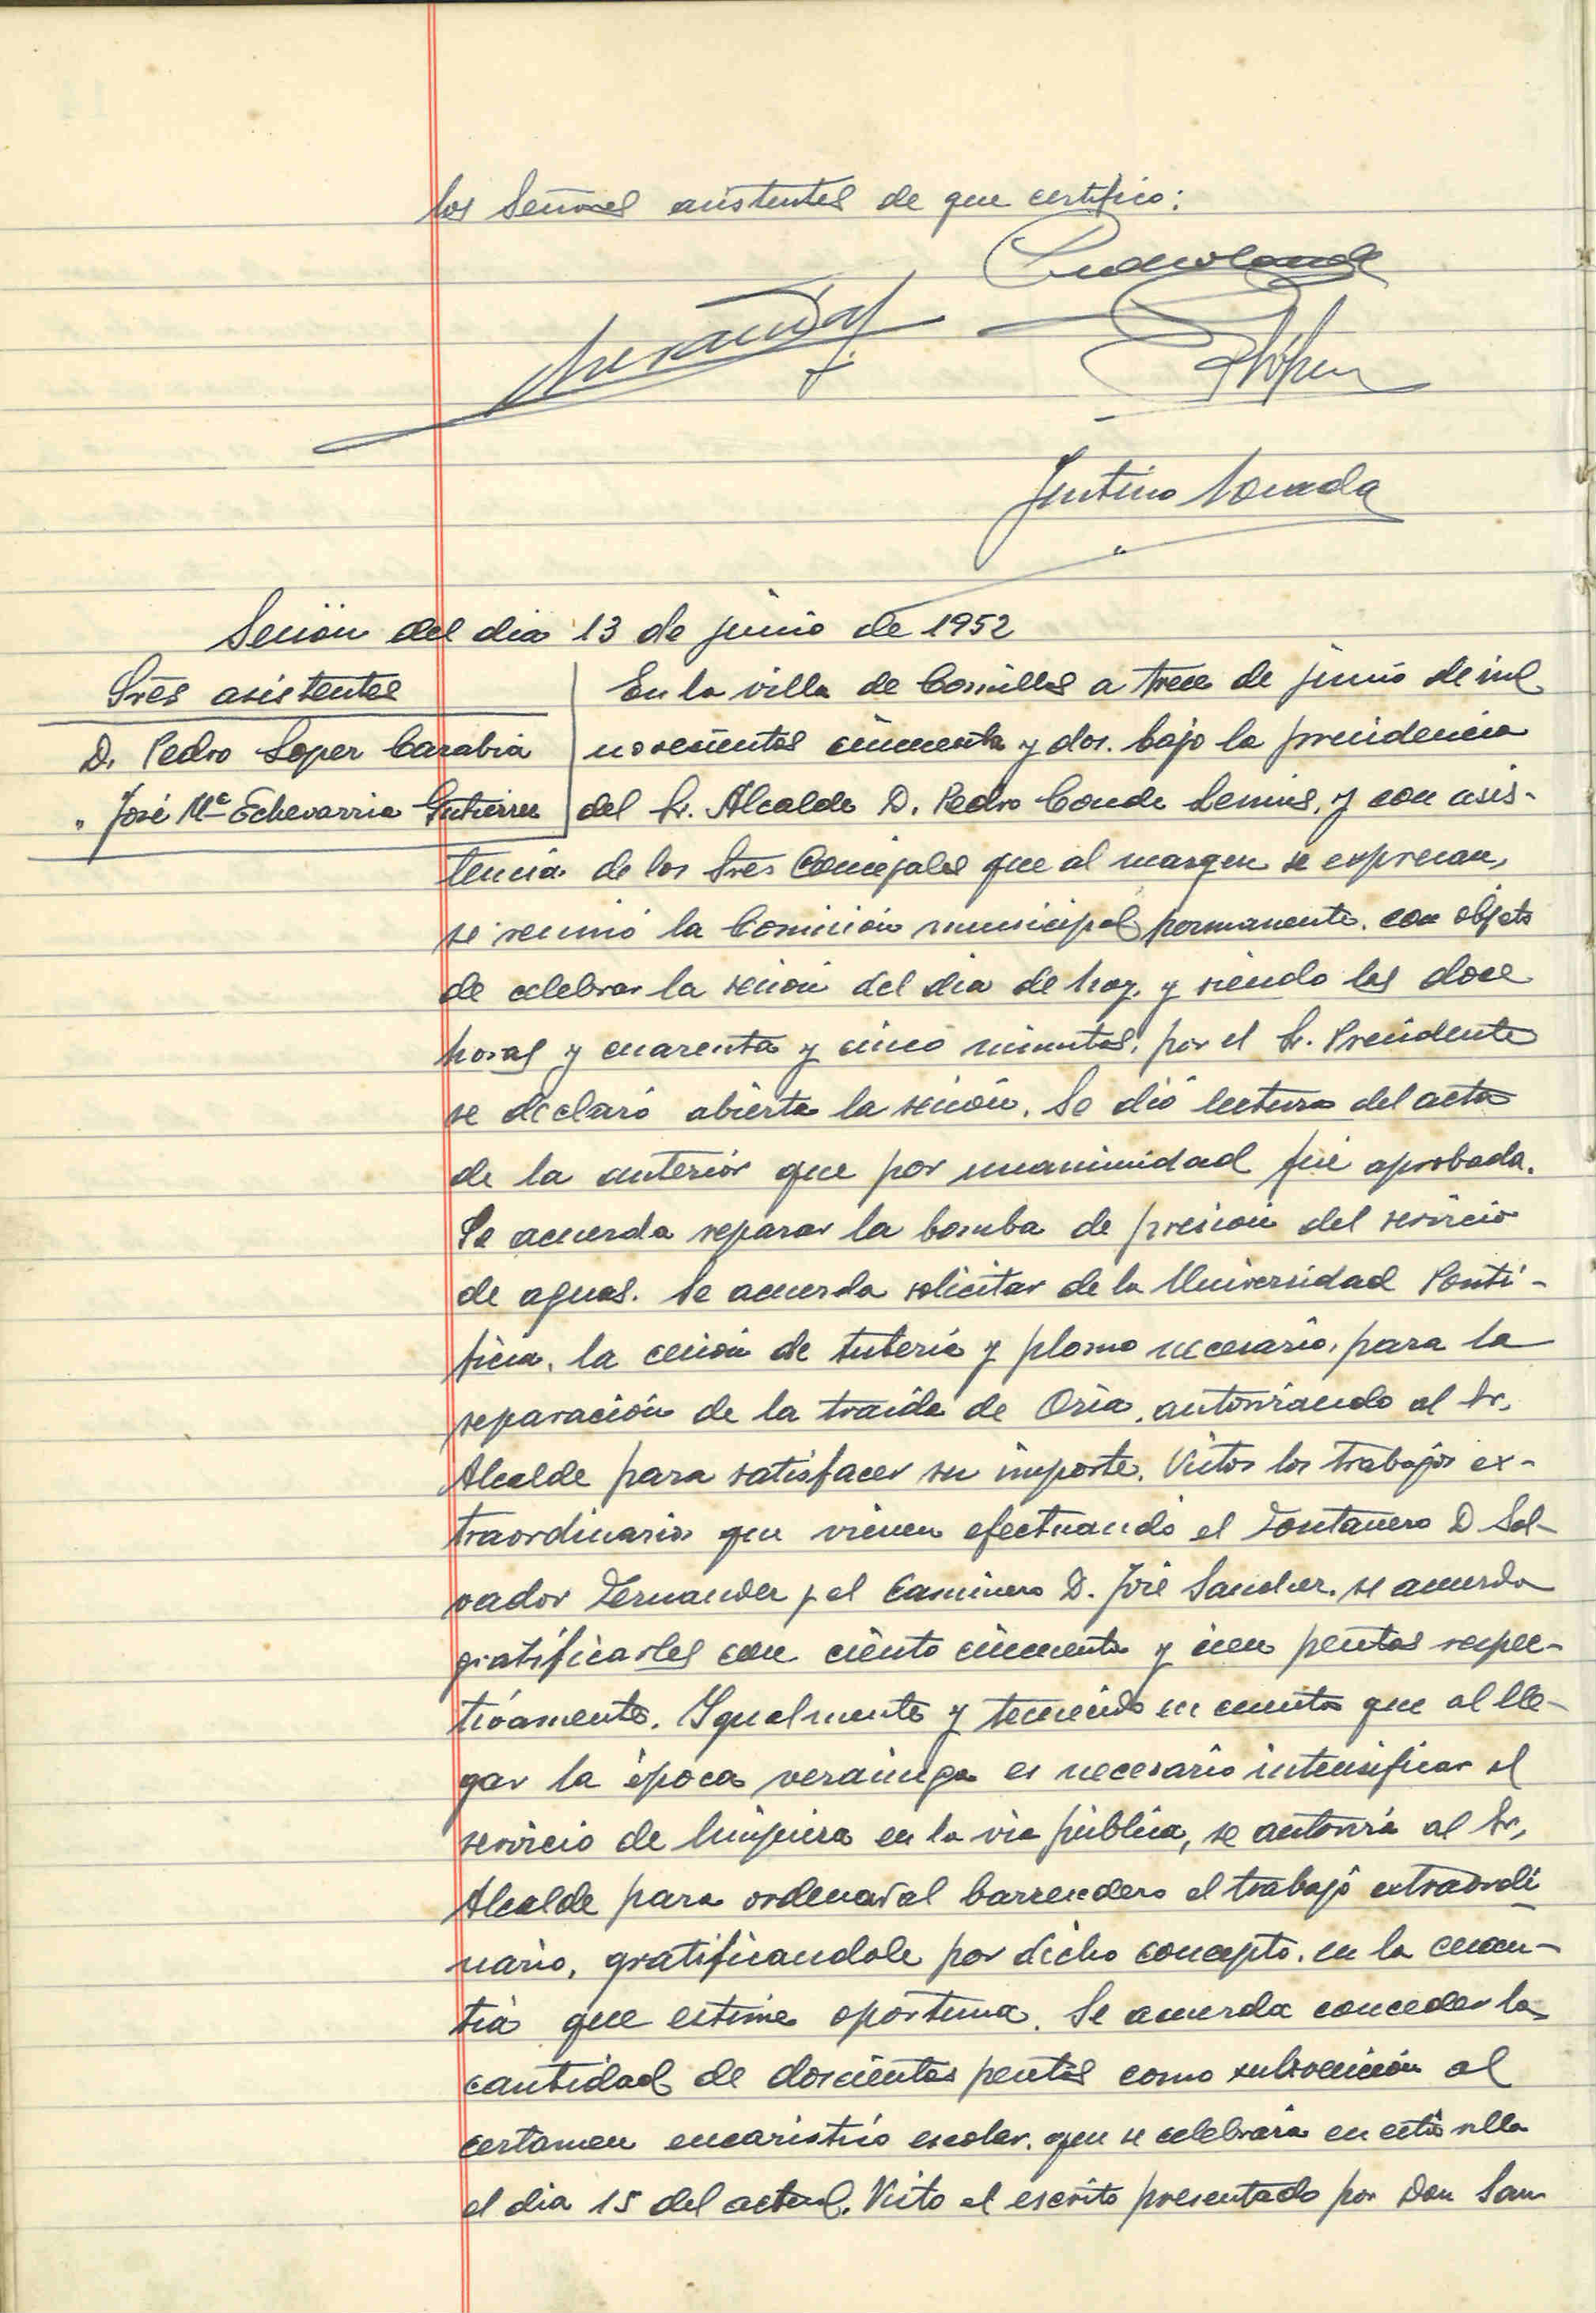 los Señores asistentes de que certifico:
Pedro Conde
P. López
Justino
Sesión del dia 13 de junio de 1952
Sres asistentes
D. Pedro Lopez Carabia
" José Mª Echevarria Gutierrez
En la villa de Comillas a trece de junio de mil
novecientos cincuenta y dos. bajo la presidencia
del Sr. Alcalde D. Pedro Conde Lemus, y con asis-
tencia de los Sres Concejales que al margen se expresan,
se reunió la Comisión municipal permanente. con objeto
de celebrar la sesion del dia de hoy. y siendo las doce
horas y cuarenta y cinco minutos, por el Sr. Presidente
se declaró abierta la sesión. Se dió lectura del acta
de la anterior que por unanimidad fué aprobada.
Se acuerda reparar la bomba de presion del servicio
de aguas. Se acuerda solicitar de la Universidad Ponti-
ficia, la cesion de tuberia y plomo necesario, para la
reparación de la traida de Oria, autorizando al Sr.
Alcalde para satisfacer su importe. Vistos los trabajos ex-
traordinarios que vienen efectuando el Fontanero D Sal-
vador Fernandez y el Caminero D. José Sanchez. se acuerda
gratificarles con ciento cincuenta y cien pesetas respec-
tivamente. Igualmente y teniendo en cuenta que al lle-
gar la época veraniega es necesario intensificar el
servicio de limpieza en la via pública, se autoriza al Sr,
Alcalde para ordenar al barrendero el trabajo extraordi
nario, gratificandole por dicho concepto. en la cuan-
tia que estime oportuna. Se acuerda conceder la
cantidad de doscientas pesetas como subvención al
certamen eucaristico escolar. que se celebrara en esta villa
el dia 15 del actual. Visto el escrito presentado por Don San